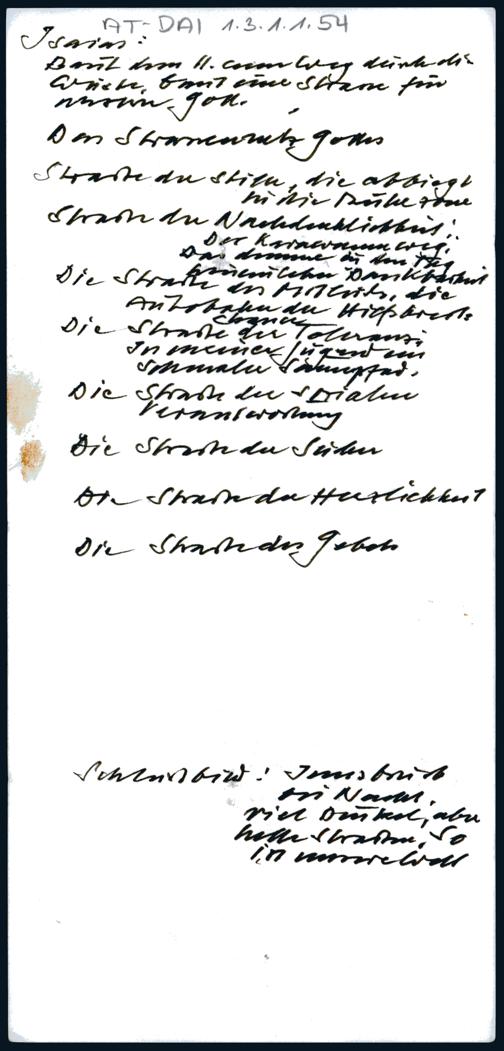 AT-DAI 1.3.1.1.54
Isaias:
Baut dem H. einen Weg durch die
Wüste, baut eine Strasse für
unseren Gott.
Das Strassennetz Gottes
Straße der Stille, die abbiegt
in die Ruhezone
Straße der Nachdenklichkeit:
Der Karawanenweg.
Das dumme in den Tag
Dankbarkeit
Die Straße des Mitleids, die
Autobahn der Hilfsbereits
Die Straße der Toleranz:
In meiner Jugend ein
schmaler Saumpfad.
Die Straße der sozialen
Verantwortung
Die Straße der Sucher
Die Straße der Herzlichkeit
Die Straße des Gebets
Schlussbild: Innsbruck
bei Nacht,
viel Dunkel, aber
helle Straßen. So
ist unsere Welt